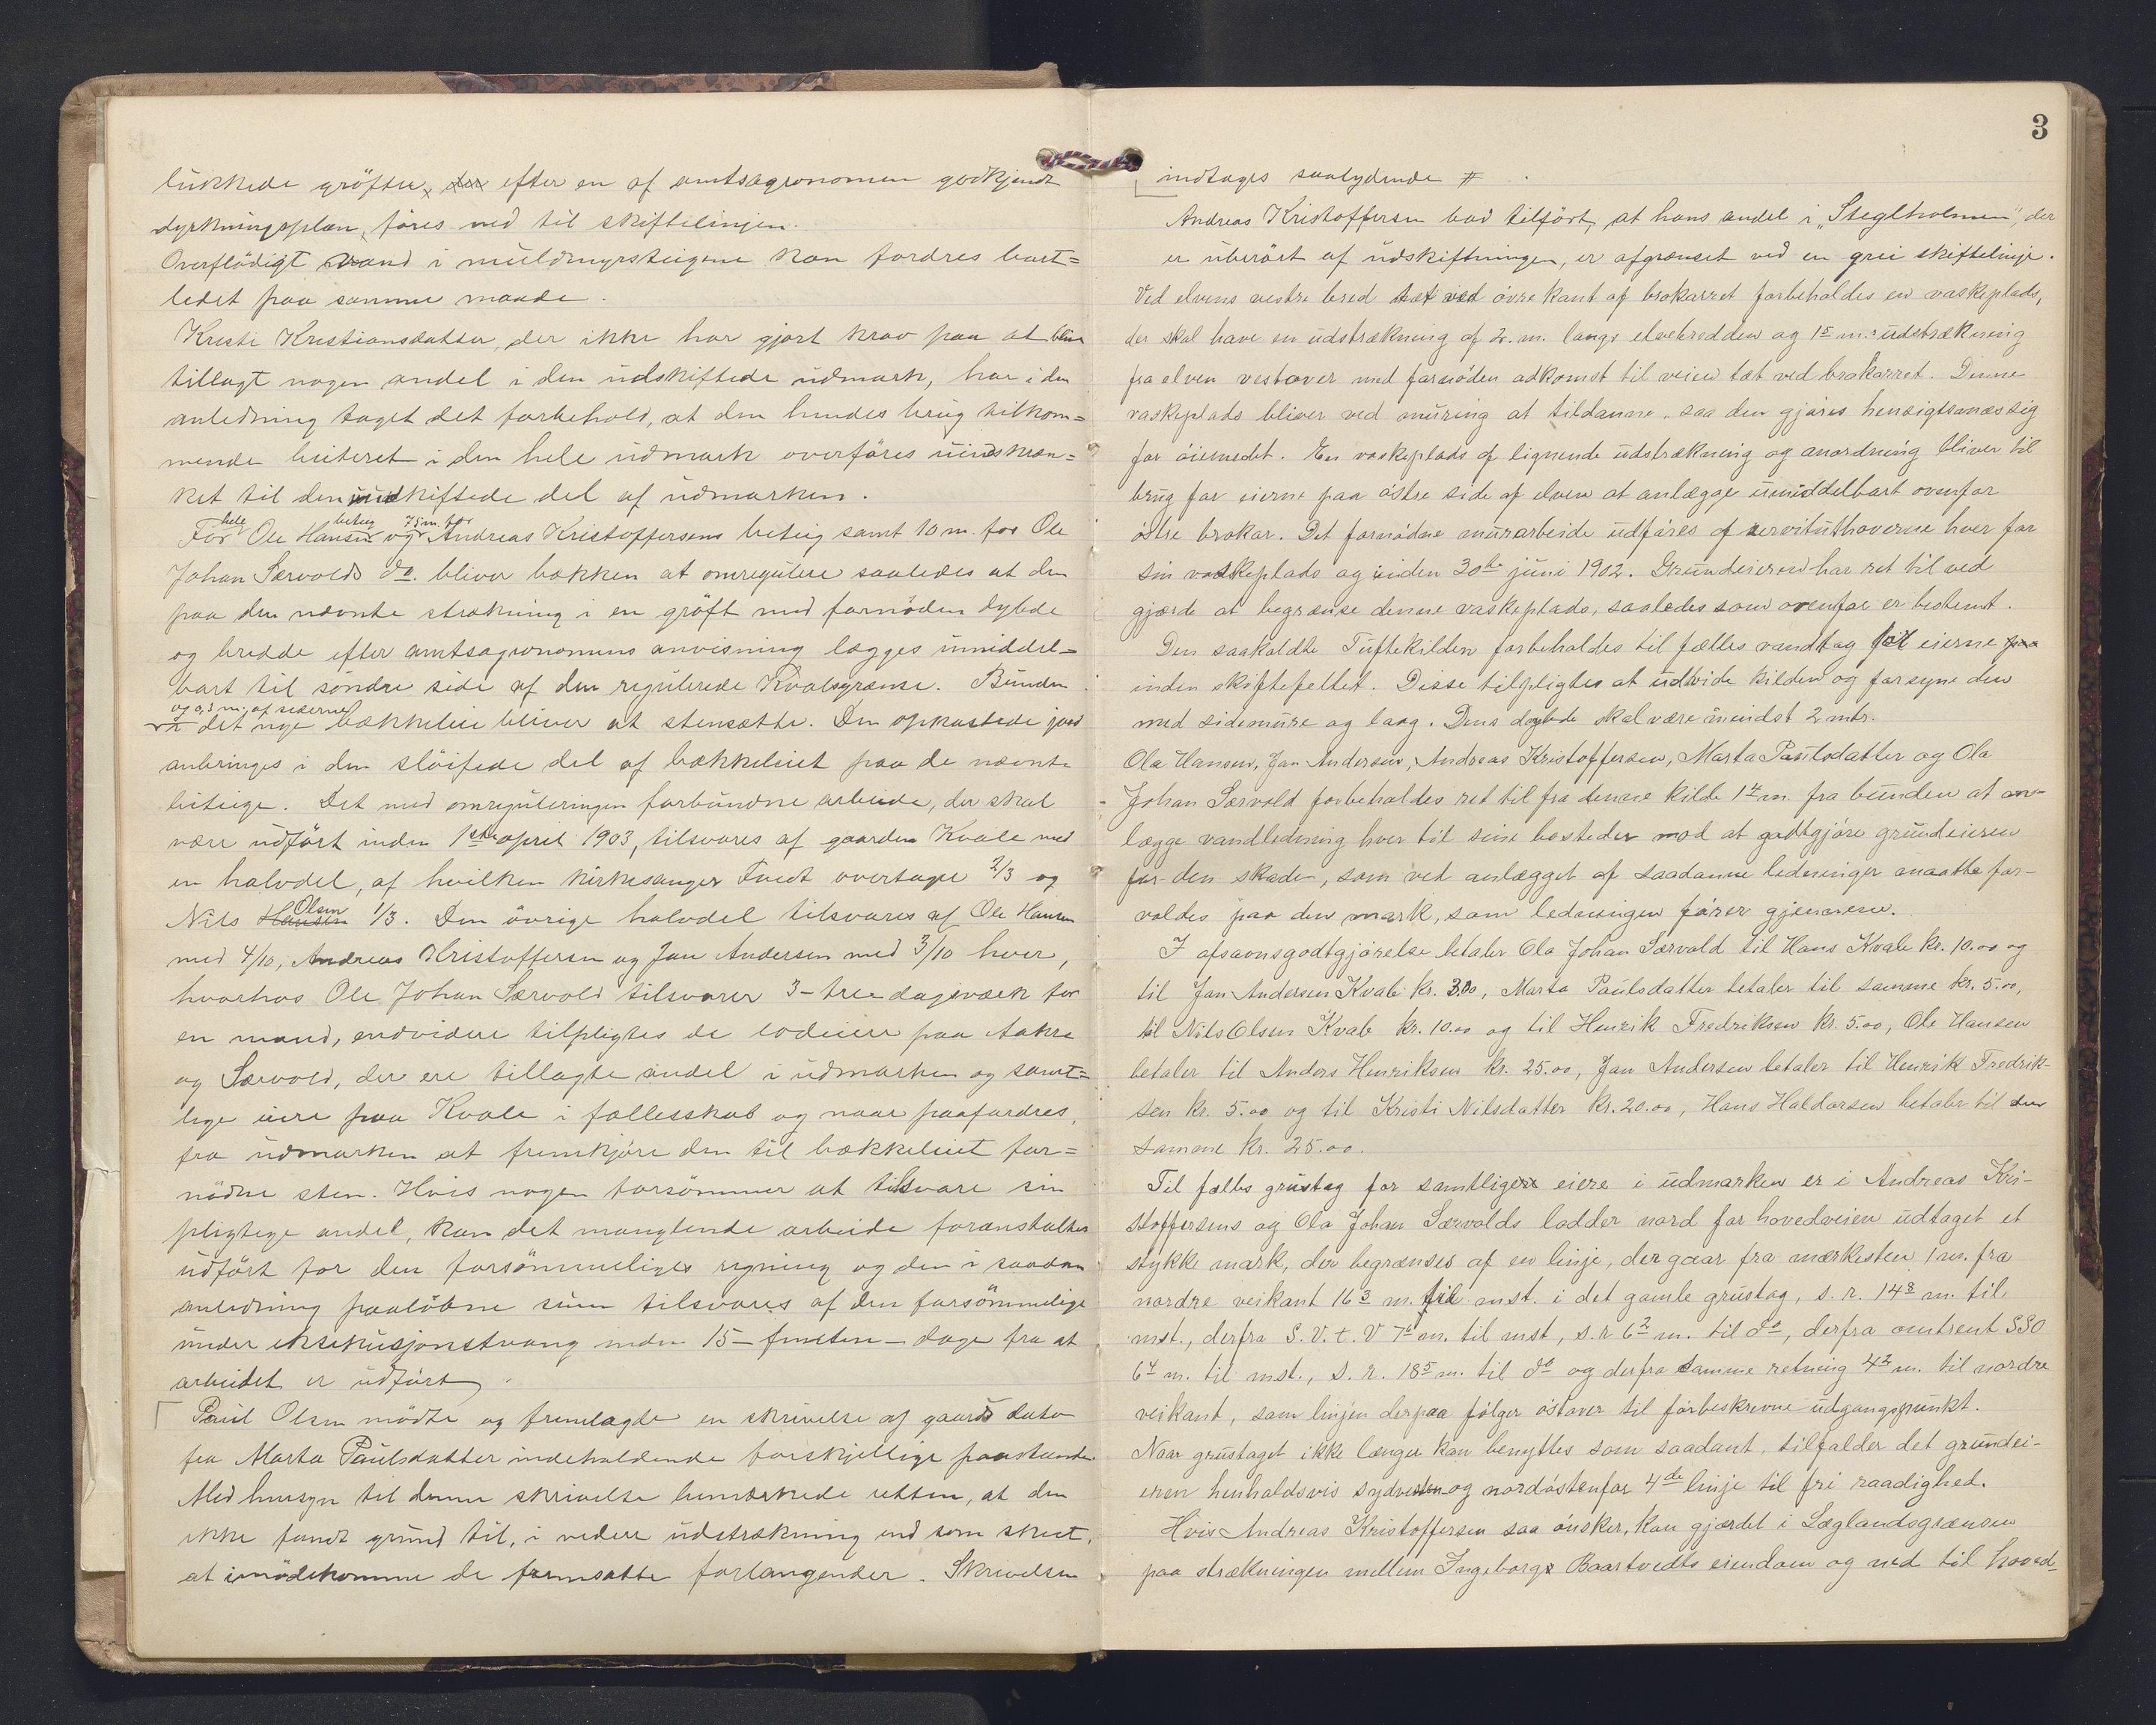 lukkede gröfter, der efter en af amtsagronomen godkjendt
dyrkningsplan, föres ned til skiftelinjen.
Overflödigt vand i muldmyrsteigene kan fordres bort=
ledet paa samme maade.
Kristi Kristiansdatter, der ikke har gjort krav paa at blive
tillagt nogen andel i den udskiftede udmark, har i den
anledning taget det forbehold, at den hendes brug tilkom=
mende beiteret i den hele udmark overföres uindskræn=
ket til den uudskiftede del af udmarken.
hele beteig 75 m. for
For Ole Hansen og Andreas Kristoffersens beteig samt 10 m. for Ole
Johan Særvolds do. bliver bækken at omregulere saaledes at den
paa den nævnte strækning i en gröft med fornöden dybde
og bredde efter amtsagronomens anvisning lægges umiddel=
bart til söndre side af den regulerede Kvalsgrænse. Bunden
og 0,3 m. af siderne
i det nye bækkeleie bliver at stensætte. Den opkastede jord
anbringes i den slöifede del af bækkeleiet paa de nævnte
beteige. Det med omreguleringen forbundne arbeide, der skal
være udfört inden 1ste april 1903, tilsvares af gaarden Kvale med
en halvdel, af hvilken kirkesanger Tvedt overtager 2/3 og
Olsen
Nils Hansen 1/3. Den övrige halvdel tilsvares af Ole Hansen
med 4/10, Andreas Kristoffersen og Jan Andersen med 3/10 hver,
hvorhos Ole Johan Særvold tilsvarer 3 - tre dagsværk for
en mand, endvidere tilpligtes de lodeiere paa Aakre
og Særvold, der ere tillagte andel i udmarken og samt=
lige eiere paa Kvale i fællesskab og naar paafordres,
fra udmarken at fremkjöre den til bækkeleiet for=
nödne sten. Hvis nogen forsömmer at tilsvare sin
pligtige andel, kan det manglende arbeide foranstaltes
udfört for den forsömmeliges regning og den i saadan
anledning paalöbne sum tilsvares af den forsömmelige
under eksekusjonstvang inden 15 - femten - dage fra at
arbeidet er udfört.
Paul Olsen mödte og fremlagde en skrivelse af gaards dato
fra Marta Paulsdatter indeholdende forskjellige paastande.
Med hensyn til denne skrivelse bemærkede retten, at den
ikke fandt grund til, i videre udstrækning end som skeet,
at imödekomme de fremsatte forlangender. Skrivelsen
3
indtages saalydende #.
Andreas Kristoffersen bad tilfört, at hans andel i "Steglholmen", der
er uberört af udskiftningen, er afgrænset ved en grei skiftelinje.
Ved elvens vestre bred tæt ved övre kant af brokarret forbeholdes en vaskeplads,
der skal have en udstrækning af 2. m. langs elvebredden og 15 m.s udstrækning
fra elven vestover med fornöden adkomst til veien tæt ved brokarret. Denne
vaskeplads bliver ved muring at tildanne, saa den gjöres hensigtsmæssig
for öiemedet. En vaskeplads af lignende udstrækning og anordning bliver til
brug for eierne paa östre side af elven at anlægge umiddelbart ovenfor
östre brokar. Det fornödne murarbeide udföres af servituthaverne hver for
sin vaskeplads og inden 30te juni 1902. Grundeieren har ret til ved
gjærde at begrænse denne vaskeplads, saaledes som ovenfor er bestemt.
Den saakaldte Tuftekilden forbeholdes til fælles vandtag for eierne paa
inden skiftefeltet. Disse tilpligtes at udvide kilden og forsyne den
med sidemure og laag. Dens dybde skal være mindst 2 mtr.
Ola Hansen, Jan Andersen, Andreas Kristoffersen, Marta Paulsdatter og Ola
Johan Særvold forbeholdes ret til fra denne kilde 14 m. fra bunden at an-
lægge vandledning hver til sine bosteder mod at godtgjöre grundeieren
for den skade, som ved anlægget af saadanne ledninger maatte for-
voldes paa den mark, som ledningen förer gjennem.
I afsavnsgodtgjörelse betaler Ola Johan Særvold til Hans Kvale kr. 10.00 og
til Jan Andersen Kvale kr. 3.00, Marta Paulsdatter betaler til samme kr. 5.00,
til Nils Olsen Kvale kr. 10.00 og til Henrik Fredriksen kr. 5.00, Ole Hansen
betaler til Anders Henriksen kr. 25.00, Jan Andersen betaler til Henrik Fredrik-
sen kr. 5.00 og til Kristi Nilsdatter kr. 20.00, Hans Haldorsen betaler til den
samme kr. 25.00.
Til fælles grustag for samtlige eiere i udmarken er i Andreas Kri-
stoffersens og Ola Johan Særvolds lodder nord for hovedveien udtaget et
stykke mark, der begrænses af en linje, der gaar fra mærkesten 1 m. fra
nordre veikant 16 3 m. til mst. i det gamle grustag, s. r. 14 8 m. til
mst., derfra S. V. t. V 7 6 m. til mst, s. r 6 2 m. til do, derfra omtrent SSO
6 4 m. til mst., s. r. 18 5 m. til do og derfra samme retning 4 2 m. til nordre
veikant, som linjen derpaa fölger östover til förbeskrevne udgangspunkt.
Naar grustaget ikke længer kan benyttes som saadant, tilfalder det grundei-
eren henholdsvis sydvesten og nordöstenfor 4de linje til fri raadighed.
Hvis Andreas Kristoffersen saa önsker, kan gjærdet i Læglandsgrænsen
paa strækningen mellem Ingeborgs Baartvedts eiendom og ned til hoved-